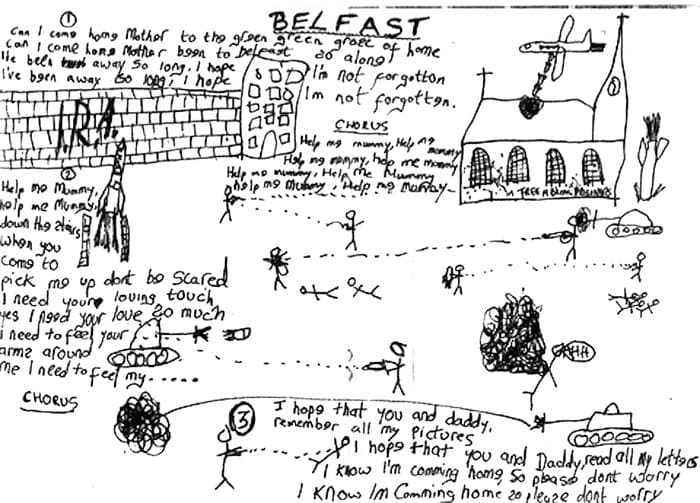 BELFAST
①
Can I come home Mother to the green green grase of home
Can I come home Mother been to belfast so along
He been away so long. I hope
I've been away so long, I hope
I'm not forgotton
I'm not forgotten.
CHORUS
Help me mummy, Help me mommy
Help me mommy, hop me mommy
Help me mummy, Help me Mummy
help me Mummy, Help me mommy
I.R.A.
②
Help me Mummy,
help me Mummy,
down the stairs
when you
come to
pick me up dont be scared
I need your loving touch
yes I need your love so much
I need to feel your
arms around
me I need to feel my......
CHORUS
AHH
③
I hope that you and daddy,
remember all my pictures
I hope that you and Daddy, read all my letters
I know I'm comming home, so please dont worry
I know I'm Comming home so please dont worry